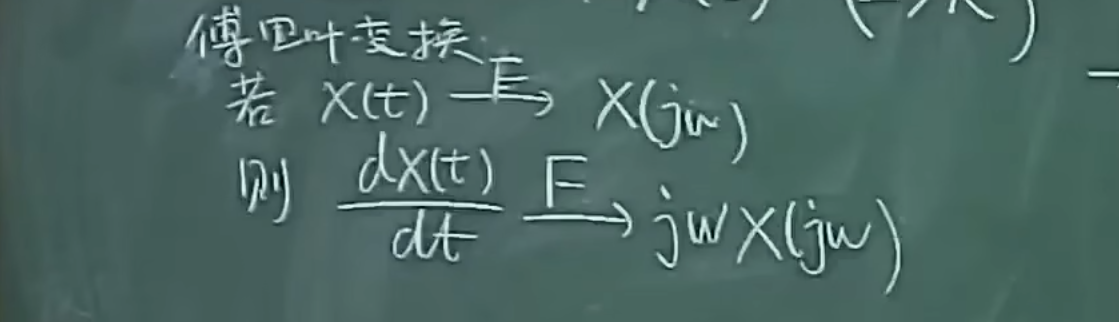 傅里叶变换
若 X(t) —F→ X(jw)
则 dX(t)/dt —F→ jwX(jw)